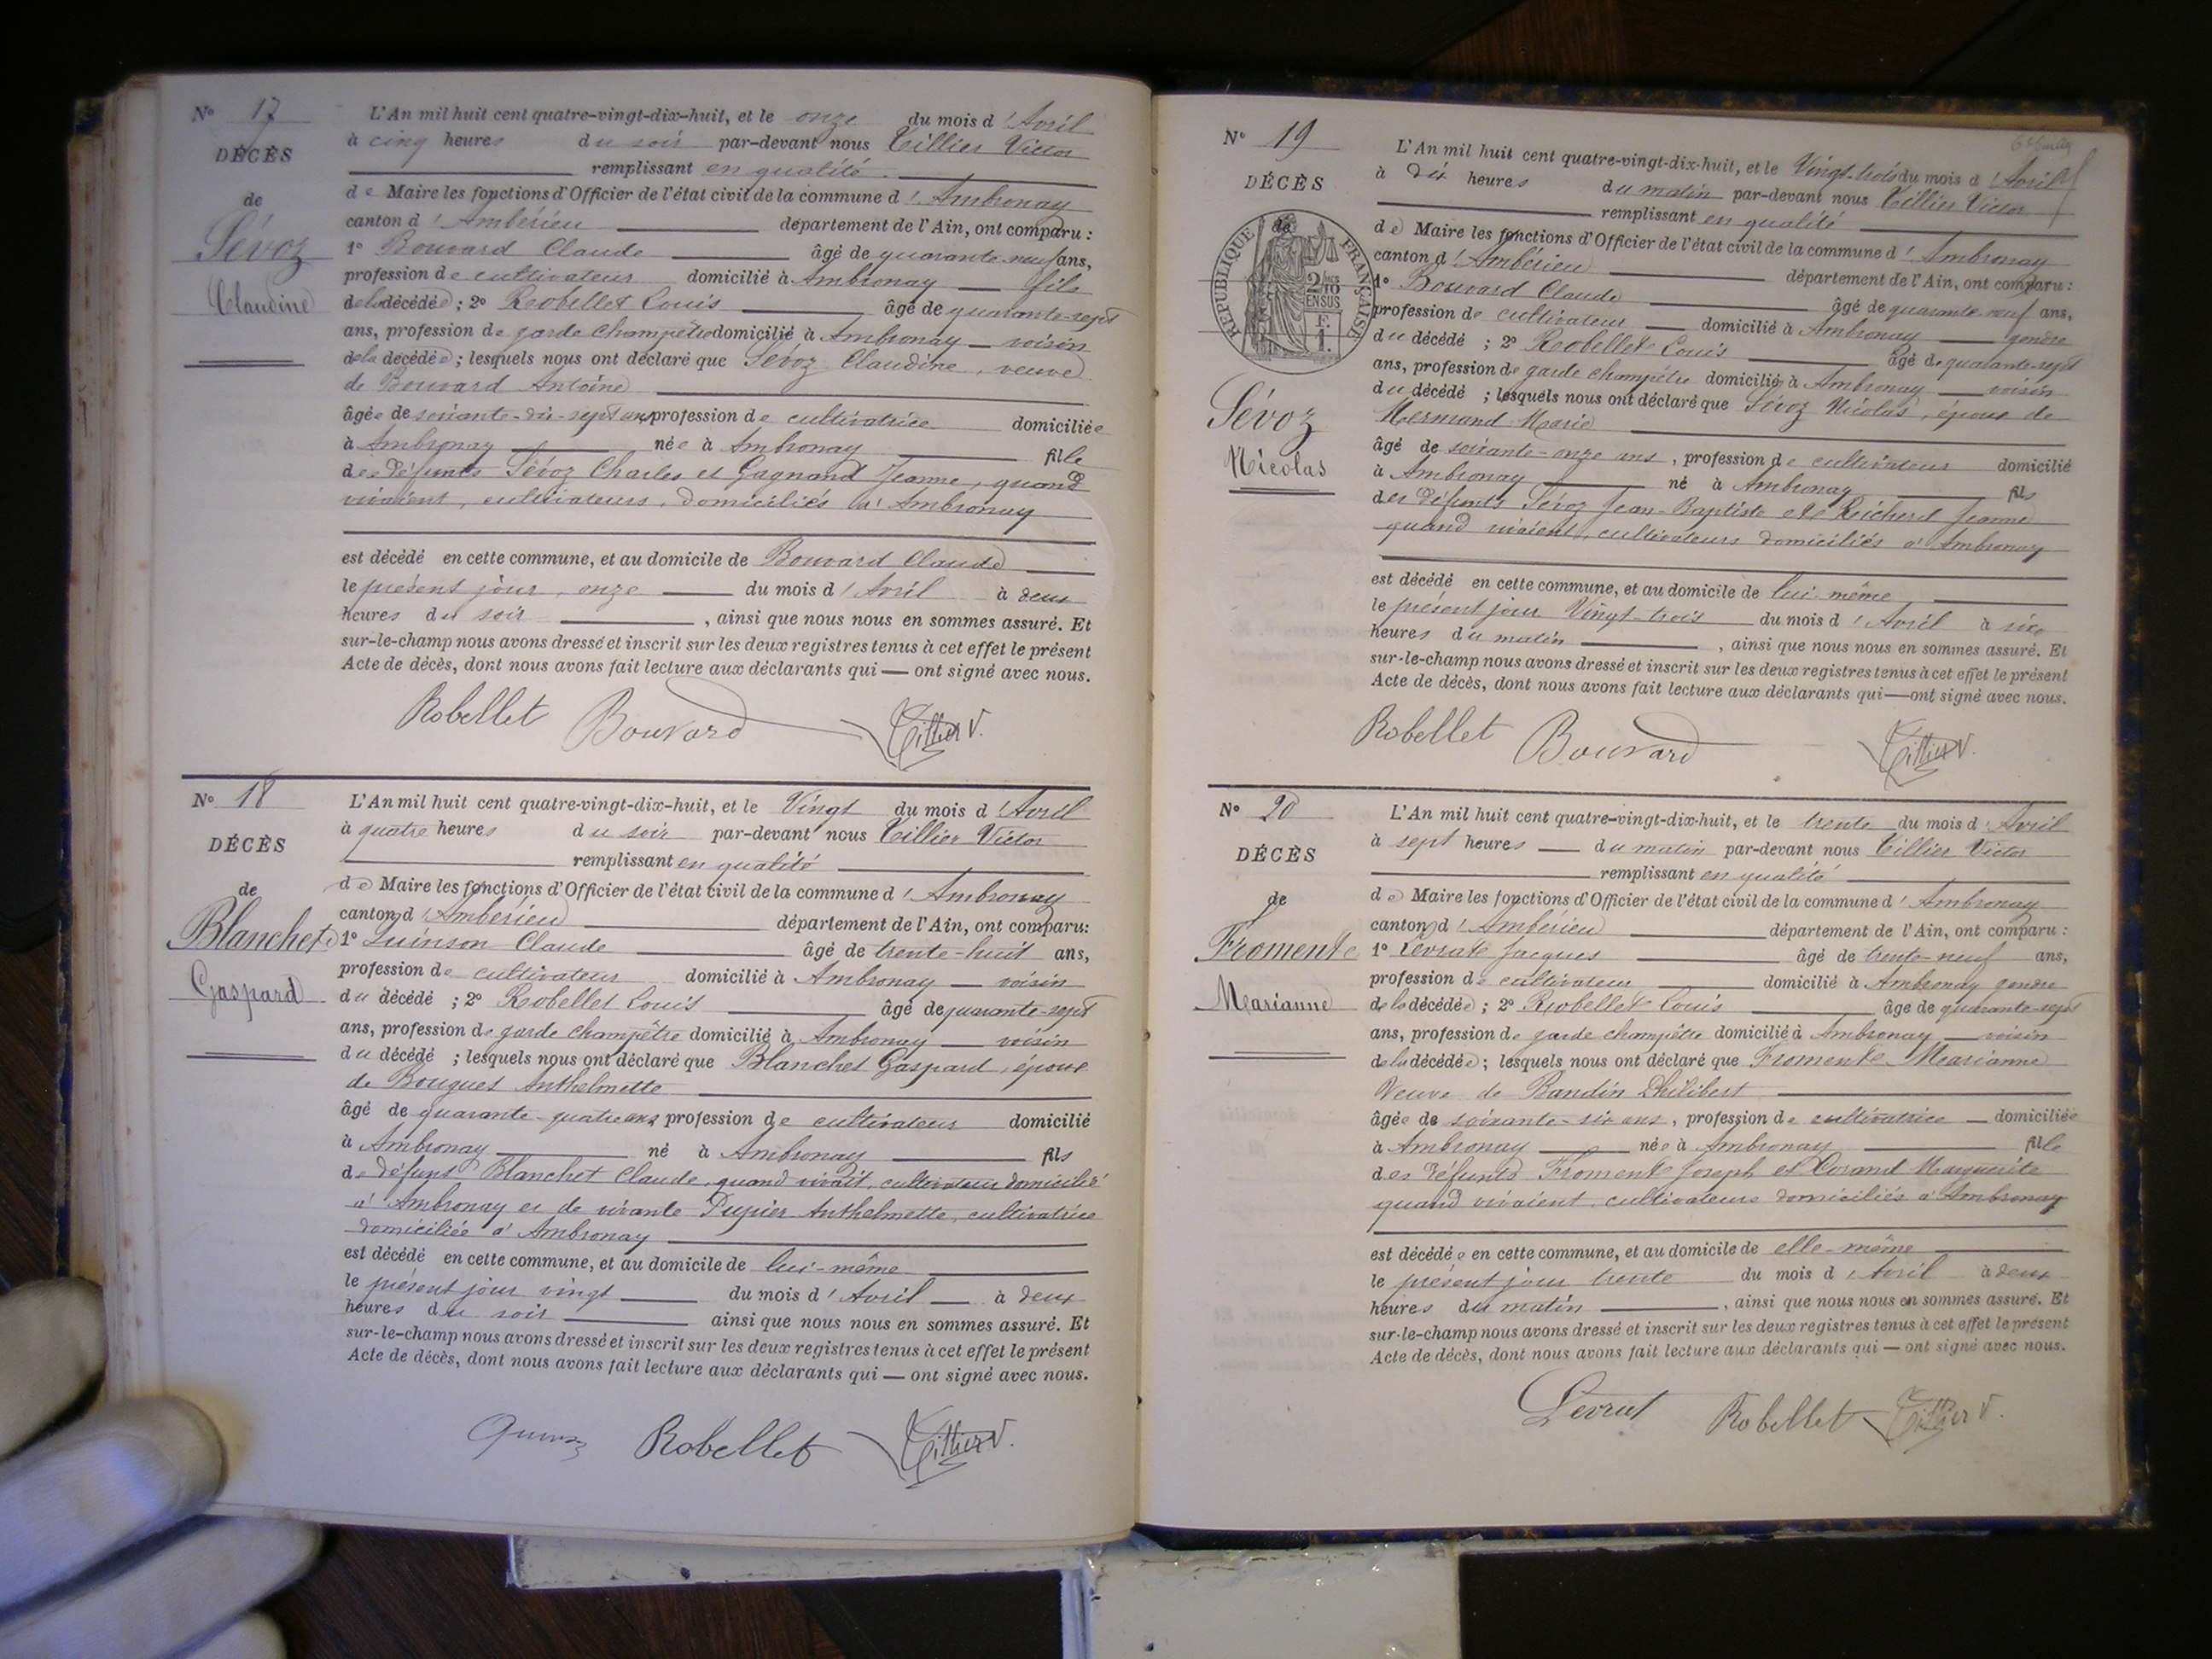 Nº 17
DÉCÈS
de
Sévoz
Claudine
L'An mil huit cent quatre-vingt-dix-huit, et le onze du mois d'Avril
à cinq heures du soir par-devant nous Tillier Victor
remplissant en qualité
de Maire les fonctions d'Officier de l'état civil de la commune d'Ambronay
canton d'Ambérieu département de l'Ain, ont comparu :
1º Bouvard Claude âgé de quarante-neuf ans,
profession de cultivateur domicilié à Ambronay fils
de la décédée ; 2º Robellet Louis âgé de quarante-sept
ans, profession de garde champêtre domicilié à Ambronay voisin
de la décédée ; lesquels nous ont déclaré que Sévoz Claudine, veuve
de Bouvard Antoine
âgée de soixante-dix-sept ans, profession de cultivatrice domiciliée
à Ambronay née à Ambronay fille
des défunts Sévoz Charles et Gagnand Jeanne, quand
vivaient, cultivateurs, domiciliés à Ambronay
est décédé en cette commune, et au domicile de Bouvard Claude
le présent jour, onze du mois d'Avril à deux
heures du soir, ainsi que nous nous en sommes assuré. Et
sur-le-champ nous avons dressé et inscrit sur les deux registres tenus à cet effet le présent
Acte de décès, dont nous avons fait lecture aux déclarants qui — ont signé avec nous.
Robellet Bouvard Tillier V.
Nº 18
DÉCÈS
de
Blanchet
Gaspard
L'An mil huit cent quatre-vingt-dix-huit, et le Vingt du mois d'Avril
à quatre heures du soir par-devant nous Tillier Victor
remplissant en qualité
de Maire les fonctions d'Officier de l'état civil de la commune d'Ambronay
canton d'Ambérieu département de l'Ain, ont comparu :
1º Quinson Claude âgé de trente-huit ans,
profession de cultivateur domicilié à Ambronay voisin
du décédé ; 2º Robellet Louis âgé de quarante-sept
ans, profession de garde champêtre domicilié à Ambronay voisin
du décédé ; lesquels nous ont déclaré que Blanchet Gaspard, époux
de Bouguet Anthelmette
âgé de quarante-quatre ans profession de cultivateur domicilié
à Ambronay né à Ambronay fils
de défunt Blanchet Claude, quand vivait, cultivateur domicilié
à Ambronay et de vivante Anthelmette, cultivatrice
domiciliée à Ambronay
est décédé en cette commune, et au domicile de lui-même
le présent jour vingt du mois d'Avril à deux
heures du soir ainsi que nous nous en sommes assuré. Et
sur-le-champ nous avons dressé et inscrit sur les deux registres tenus à cet effet le présent
Acte de décès, dont nous avons fait lecture aux déclarants qui — ont signé avec nous.
Robellet Tillier V.
Nº 19
DÉCÈS
de
RÉPUBLIQUE FRANÇAISE
Sévoz
Nicolas
L'An mil huit cent quatre-vingt-dix-huit, et le Vingt-trois du mois d'Avril
à dix heures du matin par-devant nous Tillier Victor
remplissant en qualité
de Maire les fonctions d'Officier de l'état civil de la commune d'Ambronay
canton d'Ambérieu département de l'Ain, ont comparu :
1º Bouvard Claude âgé de quarante-neuf ans,
profession de cultivateur domicilié à Ambronay gendre
du décédé ; 2º Robellet Louis âgé de quarante-sept
ans, profession de garde champêtre domicilié à Ambronay voisin
du décédé ; lesquels nous ont déclaré que Sévoz Nicolas, époux de
Mermand Marie
âgé de soixante-onze ans, profession de cultivateur domicilié
à Ambronay né à Ambronay fils
des défunts Sévoz Jean-Baptiste et Jeanne
quand vivaient, cultivateurs domiciliés à Ambronay
est décédé en cette commune, et au domicile de lui-même
le présent jour Vingt-trois du mois d'Avril à six
heures du matin, ainsi que nous nous en sommes assuré. Et
sur-le-champ nous avons dressé et inscrit sur les deux registres tenus à cet effet le présent
Acte de décès, dont nous avons fait lecture aux déclarants qui — ont signé avec nous.
Robellet Bouvard Tillier V.
Nº 20
DÉCÈS
de
Fromente
Marianne
L'An mil huit cent quatre-vingt-dix-huit, et le trente du mois d'Avril
à sept heures du matin par-devant nous Tillier Victor
remplissant en qualité
de Maire les fonctions d'Officier de l'état civil de la commune d'Ambronay
canton d'Ambérieu département de l'Ain, ont comparu :
1º Levrat Jacques âgé de trente-neuf ans,
profession de cultivateur domicilié à Ambronay gendre
de la décédée ; 2º Robellet Louis âgé de quarante-sept
ans, profession de garde champêtre domicilié à Ambronay voisin
de la décédée ; lesquels nous ont déclaré que Fromente Marianne
Veuve de Bandin Philibert
âgée de soixante-six ans, profession de cultivatrice domiciliée
à Ambronay née à Ambronay fille
des défunts Fromente Joseph et Marguerite
quand vivaient cultivateurs domiciliés à Ambronay
est décédée en cette commune, et au domicile de elle-même
le présent jour trente du mois d'Avril à deux
heures du matin, ainsi que nous nous en sommes assuré. Et
sur-le-champ nous avons dressé et inscrit sur les deux registres tenus à cet effet le présent
Acte de décès, dont nous avons fait lecture aux déclarants qui — ont signé avec nous.
Levrat Robellet Tillier V.